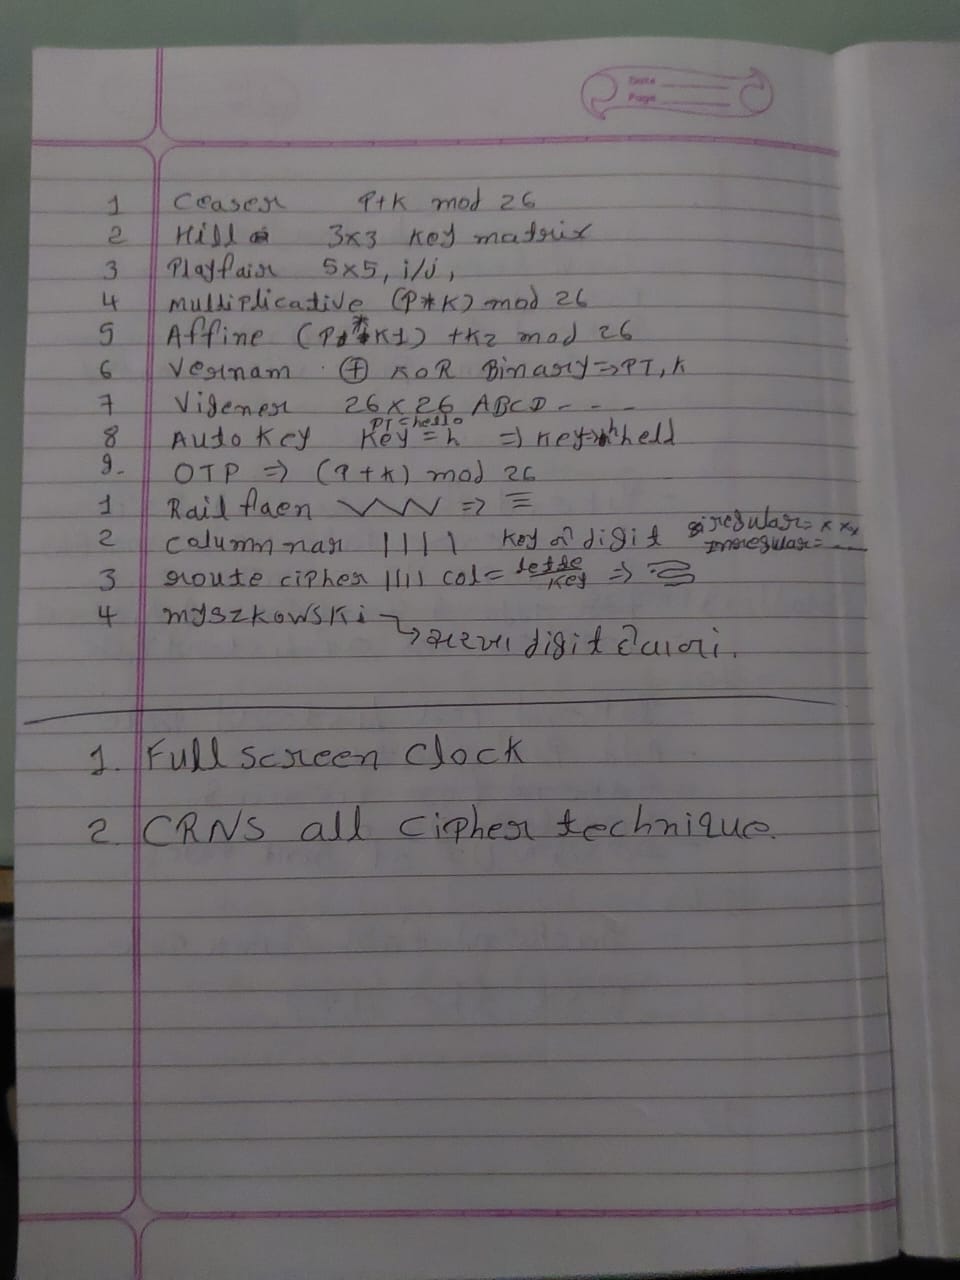 Date
Page
1 Ceaser P+K mod 26
2 Hill 3x3 Key matrix
3 Playfair 5x5, i/j,
4 multiplicative (P*K) mod 26
5 Affine (P*K1) +K2 mod 26
6 Vernam ⊕ XOR Binary => PT, K
7 Vigener 26 x 26 ABCD - - -
PT = hello
8 Auto Key Key = h => Key = hhell
9. OTP => (P+K) mod 26
1 Rail faen =>
2 columnnar |||| Key of digit regular = x xy
irregular = --
3 route cipher |||| col = Key =>
4 myszkowski
→ સરખા digit
1. Full screen clock
2. CRNS all cipher technique.